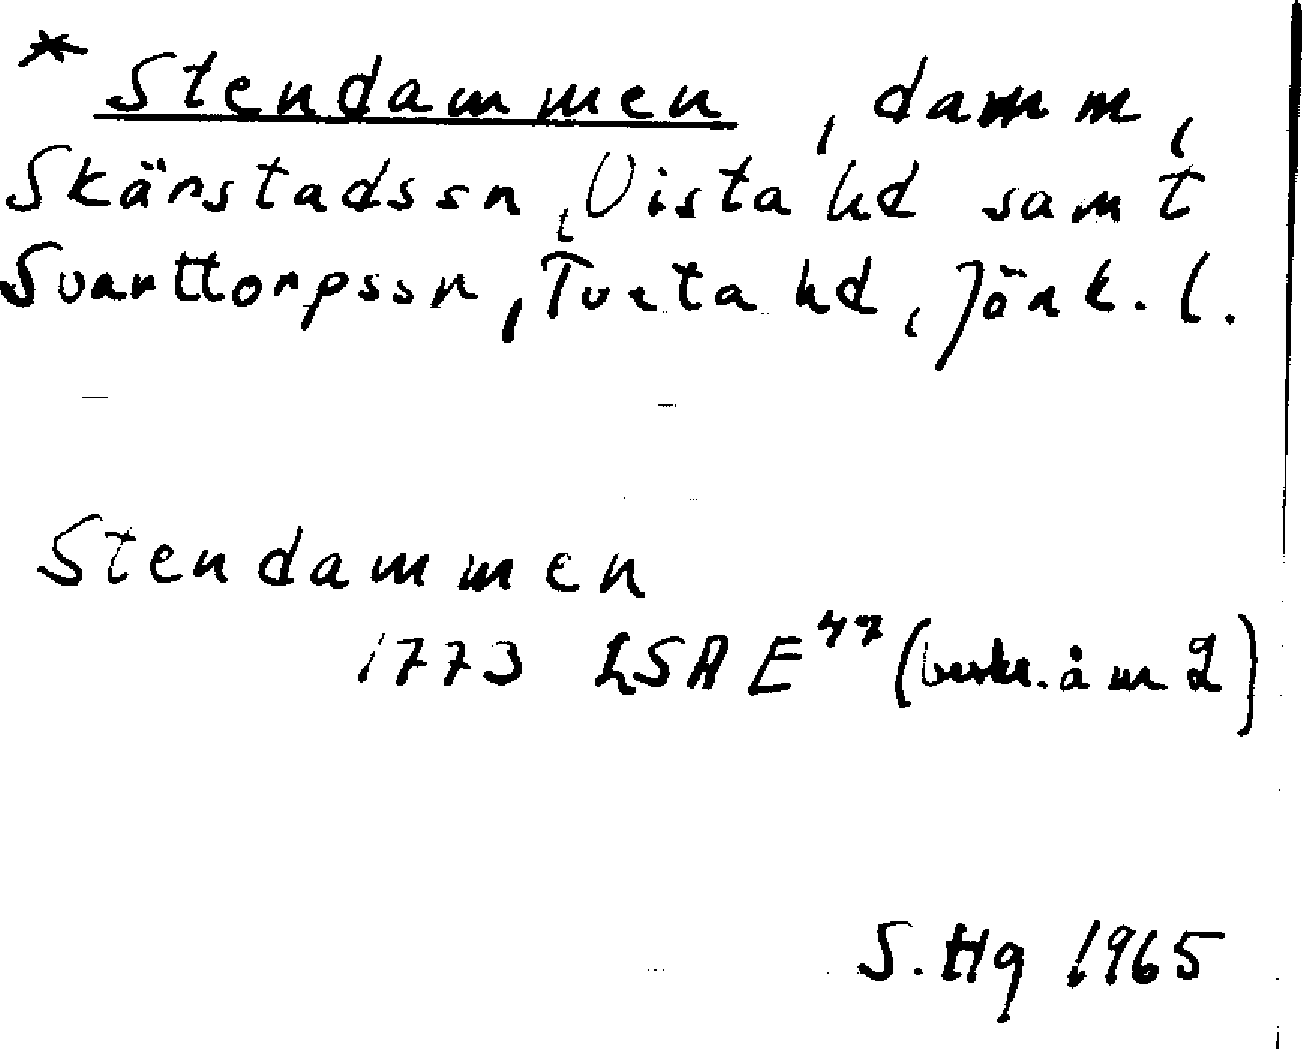 * Stendammen, damm,
Skärstadssn, Vista hd samt
Svarttorpssn, Tveta hd, Jönk. l.
Stendammen
1773 LSA E 47 (beskr. å nr 2)
S. Hg 1965